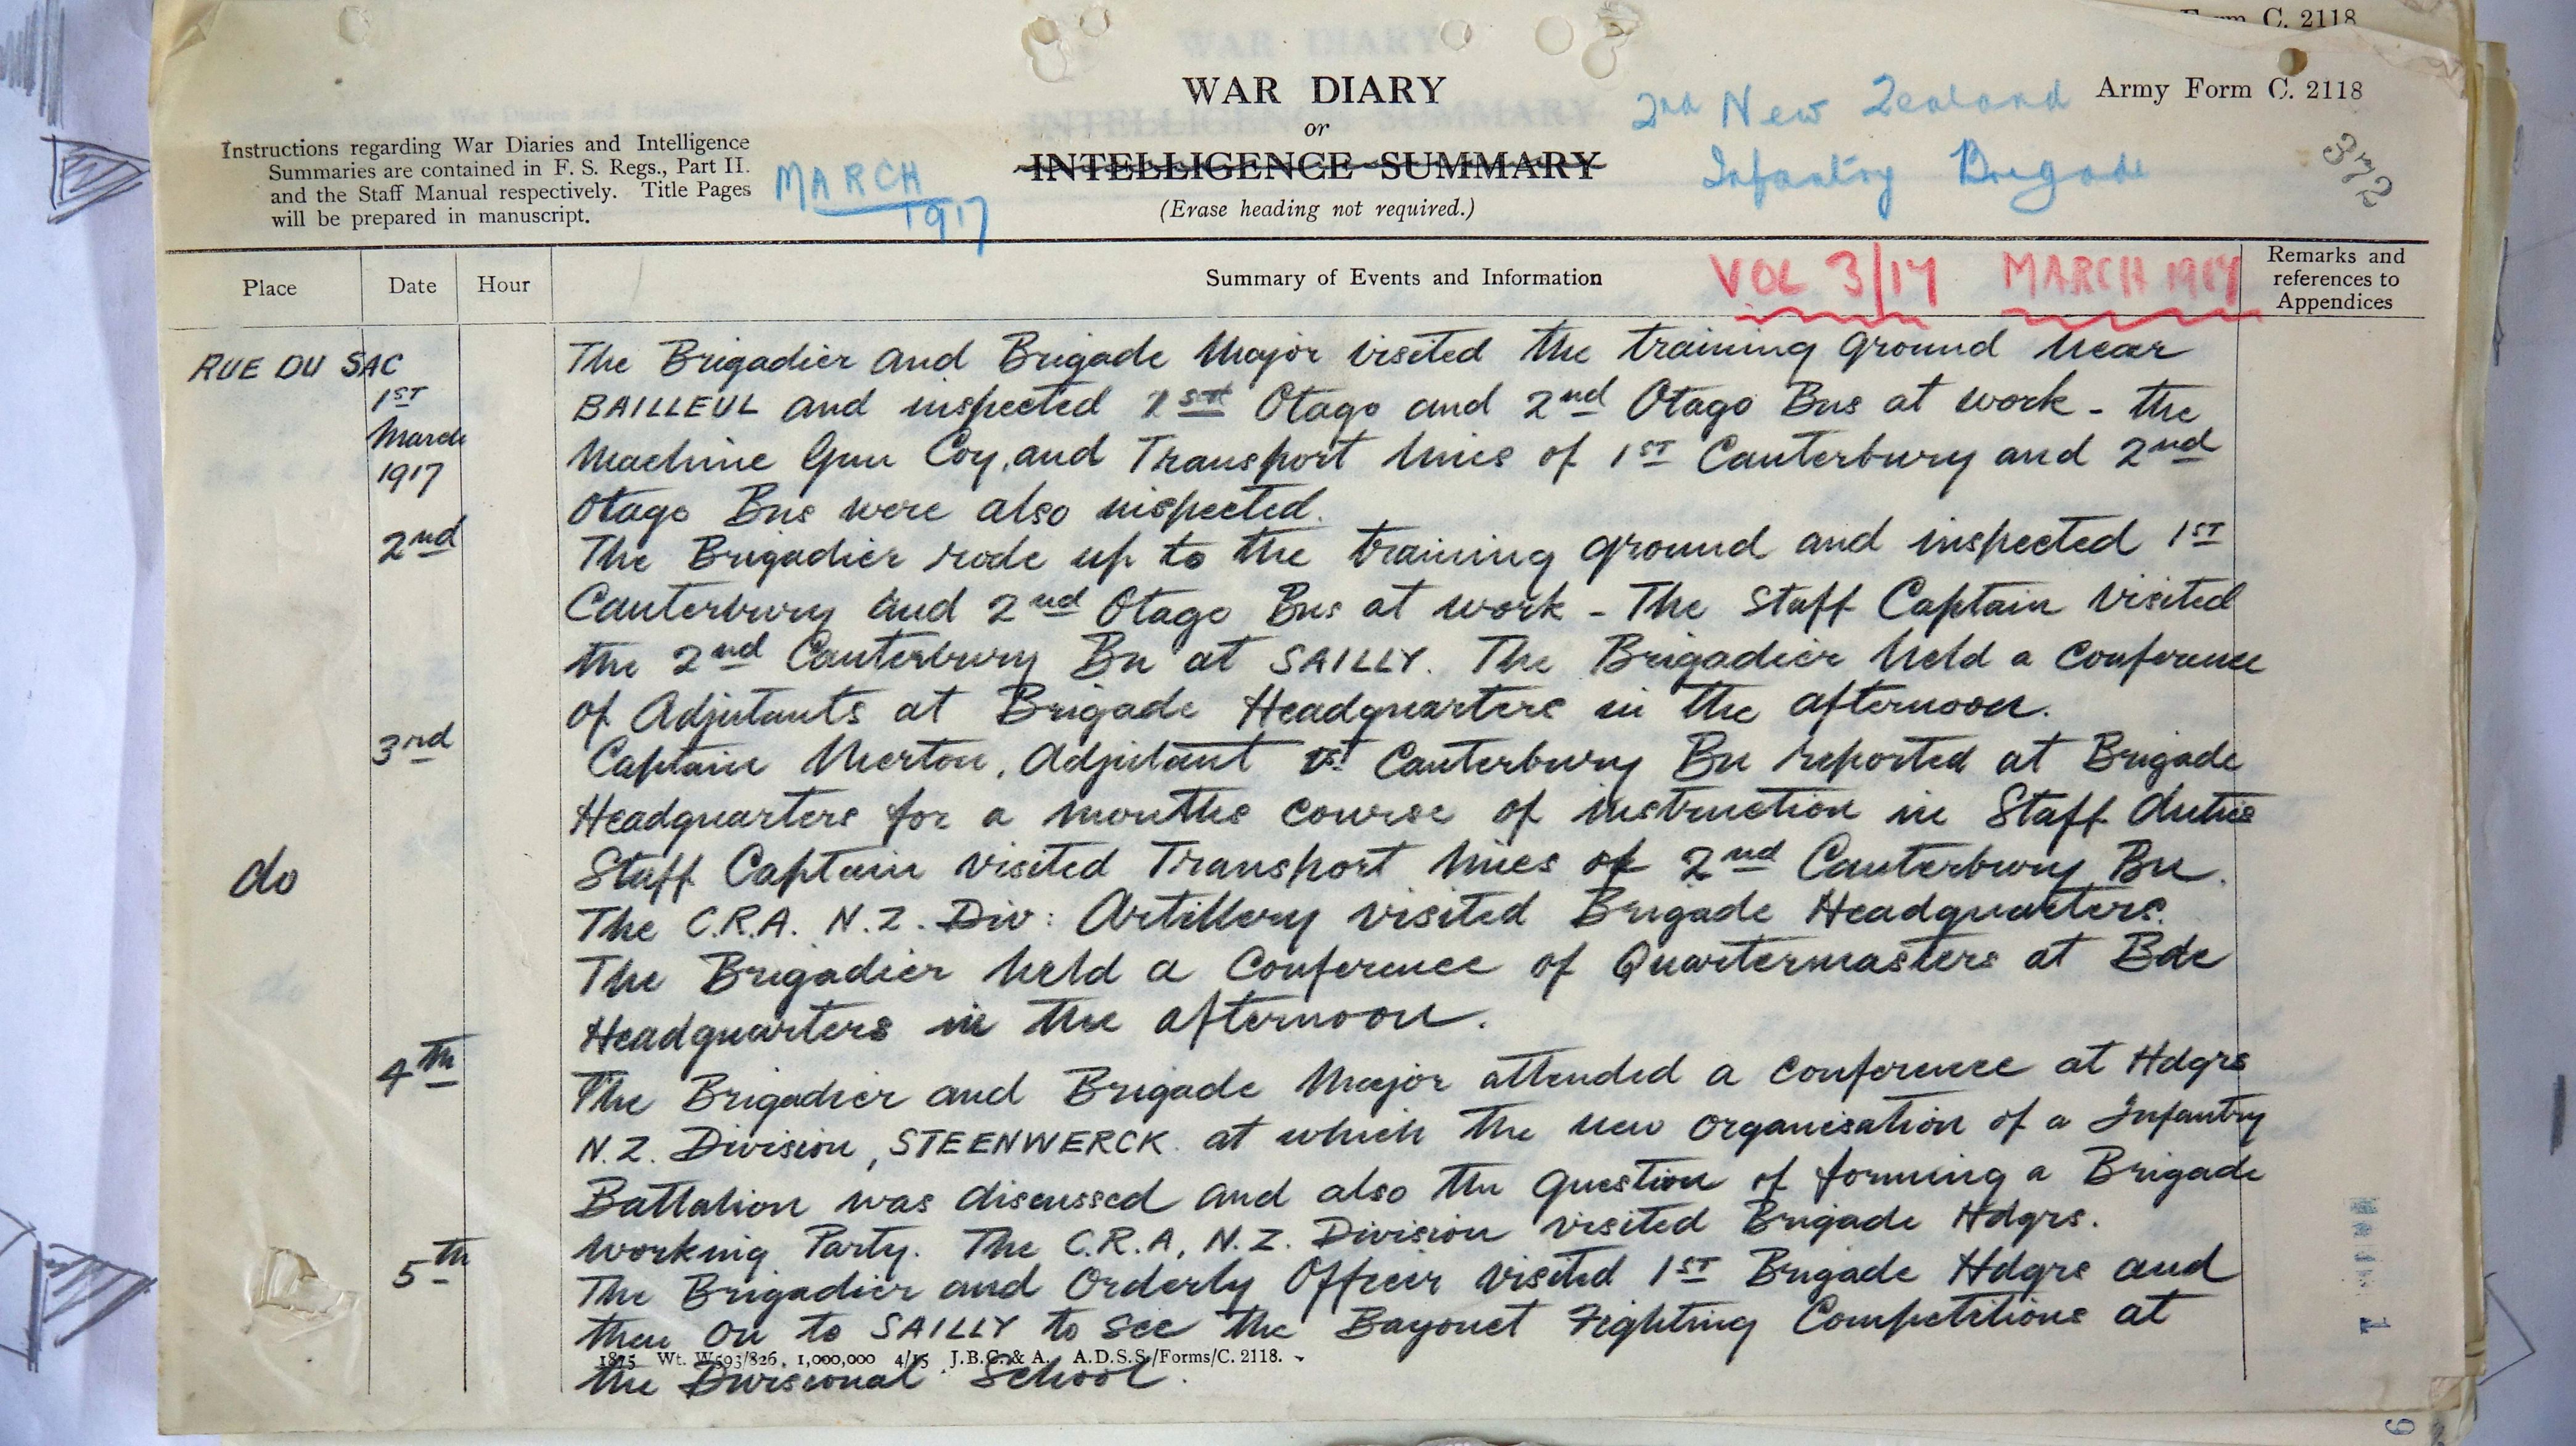 Form C. 2118
WAR DIARY
or
INTELLIGENCE SUMMARY
(Erase heading not required.)
Army Form C. 2118
2nd New Zealand
Infantry Brigade
Instructions regarding War Diaries and Intelligence
Summaries are contained in F. S. Regs., Part II.
and the Staff Manual respectively. Title Pages
will be prepared in manuscript.
MARCH
1917
Place
Date
Hour
Summary of Events and Information
VOL 3/17 MARCH 1917
Remarks and
references to
Appendices
RUE DU SAC
1ST
March
1917
The Brigadier and Brigade Major visited the training ground near
BAILLEUL and inspected 1st Otago and 2nd Otago Bns at work - the
Machine Gun Coy, and Transport lines of 1ST Canterbury and 2nd
Otago Bns were also inspected.
2nd
The Brigadier rode up to the training ground and inspected 1ST
Canterbury and 2nd Otago Bns at work - The Staff Captain visited
the 2nd Canterbury Bn at SAILLY. The Brigadier held a conference
of Adjutants at Brigade Headquarters in the afternoon.
3rd
Captain Merton, Adjutant 1st Canterbury Bn reported at Brigade
Headquarters for a months course of instruction in Staff duties
do
Staff Captain visited Transport lines of 2nd Canterbury Bn.
The C.R.A. N.Z. Div: Artillery visited Brigade Headquarters.
The Brigadier held a Conference of Quartermasters at Bde
Headquarters in the afternoon.
4th
The Brigadier and Brigade Major attended a conference at Hdqrs
N.Z. Division, STEENWERCK. at which the new organisation of a Infantry
Battalion was discussed and also the question of forming a Brigade
Working Party. The C.R.A, N.Z. Division visited Brigade Hdqrs.
5th
The Brigadier and Orderly Officer visited 1ST Brigade Hdqrs and
then on to SAILLY to see the Bayonet Fighting Competitions at
1875 Wt. W593/826 1,000,000 4/15 J.B.C. & A. A.D.S.S./Forms/C. 2118.
the Divisional School.